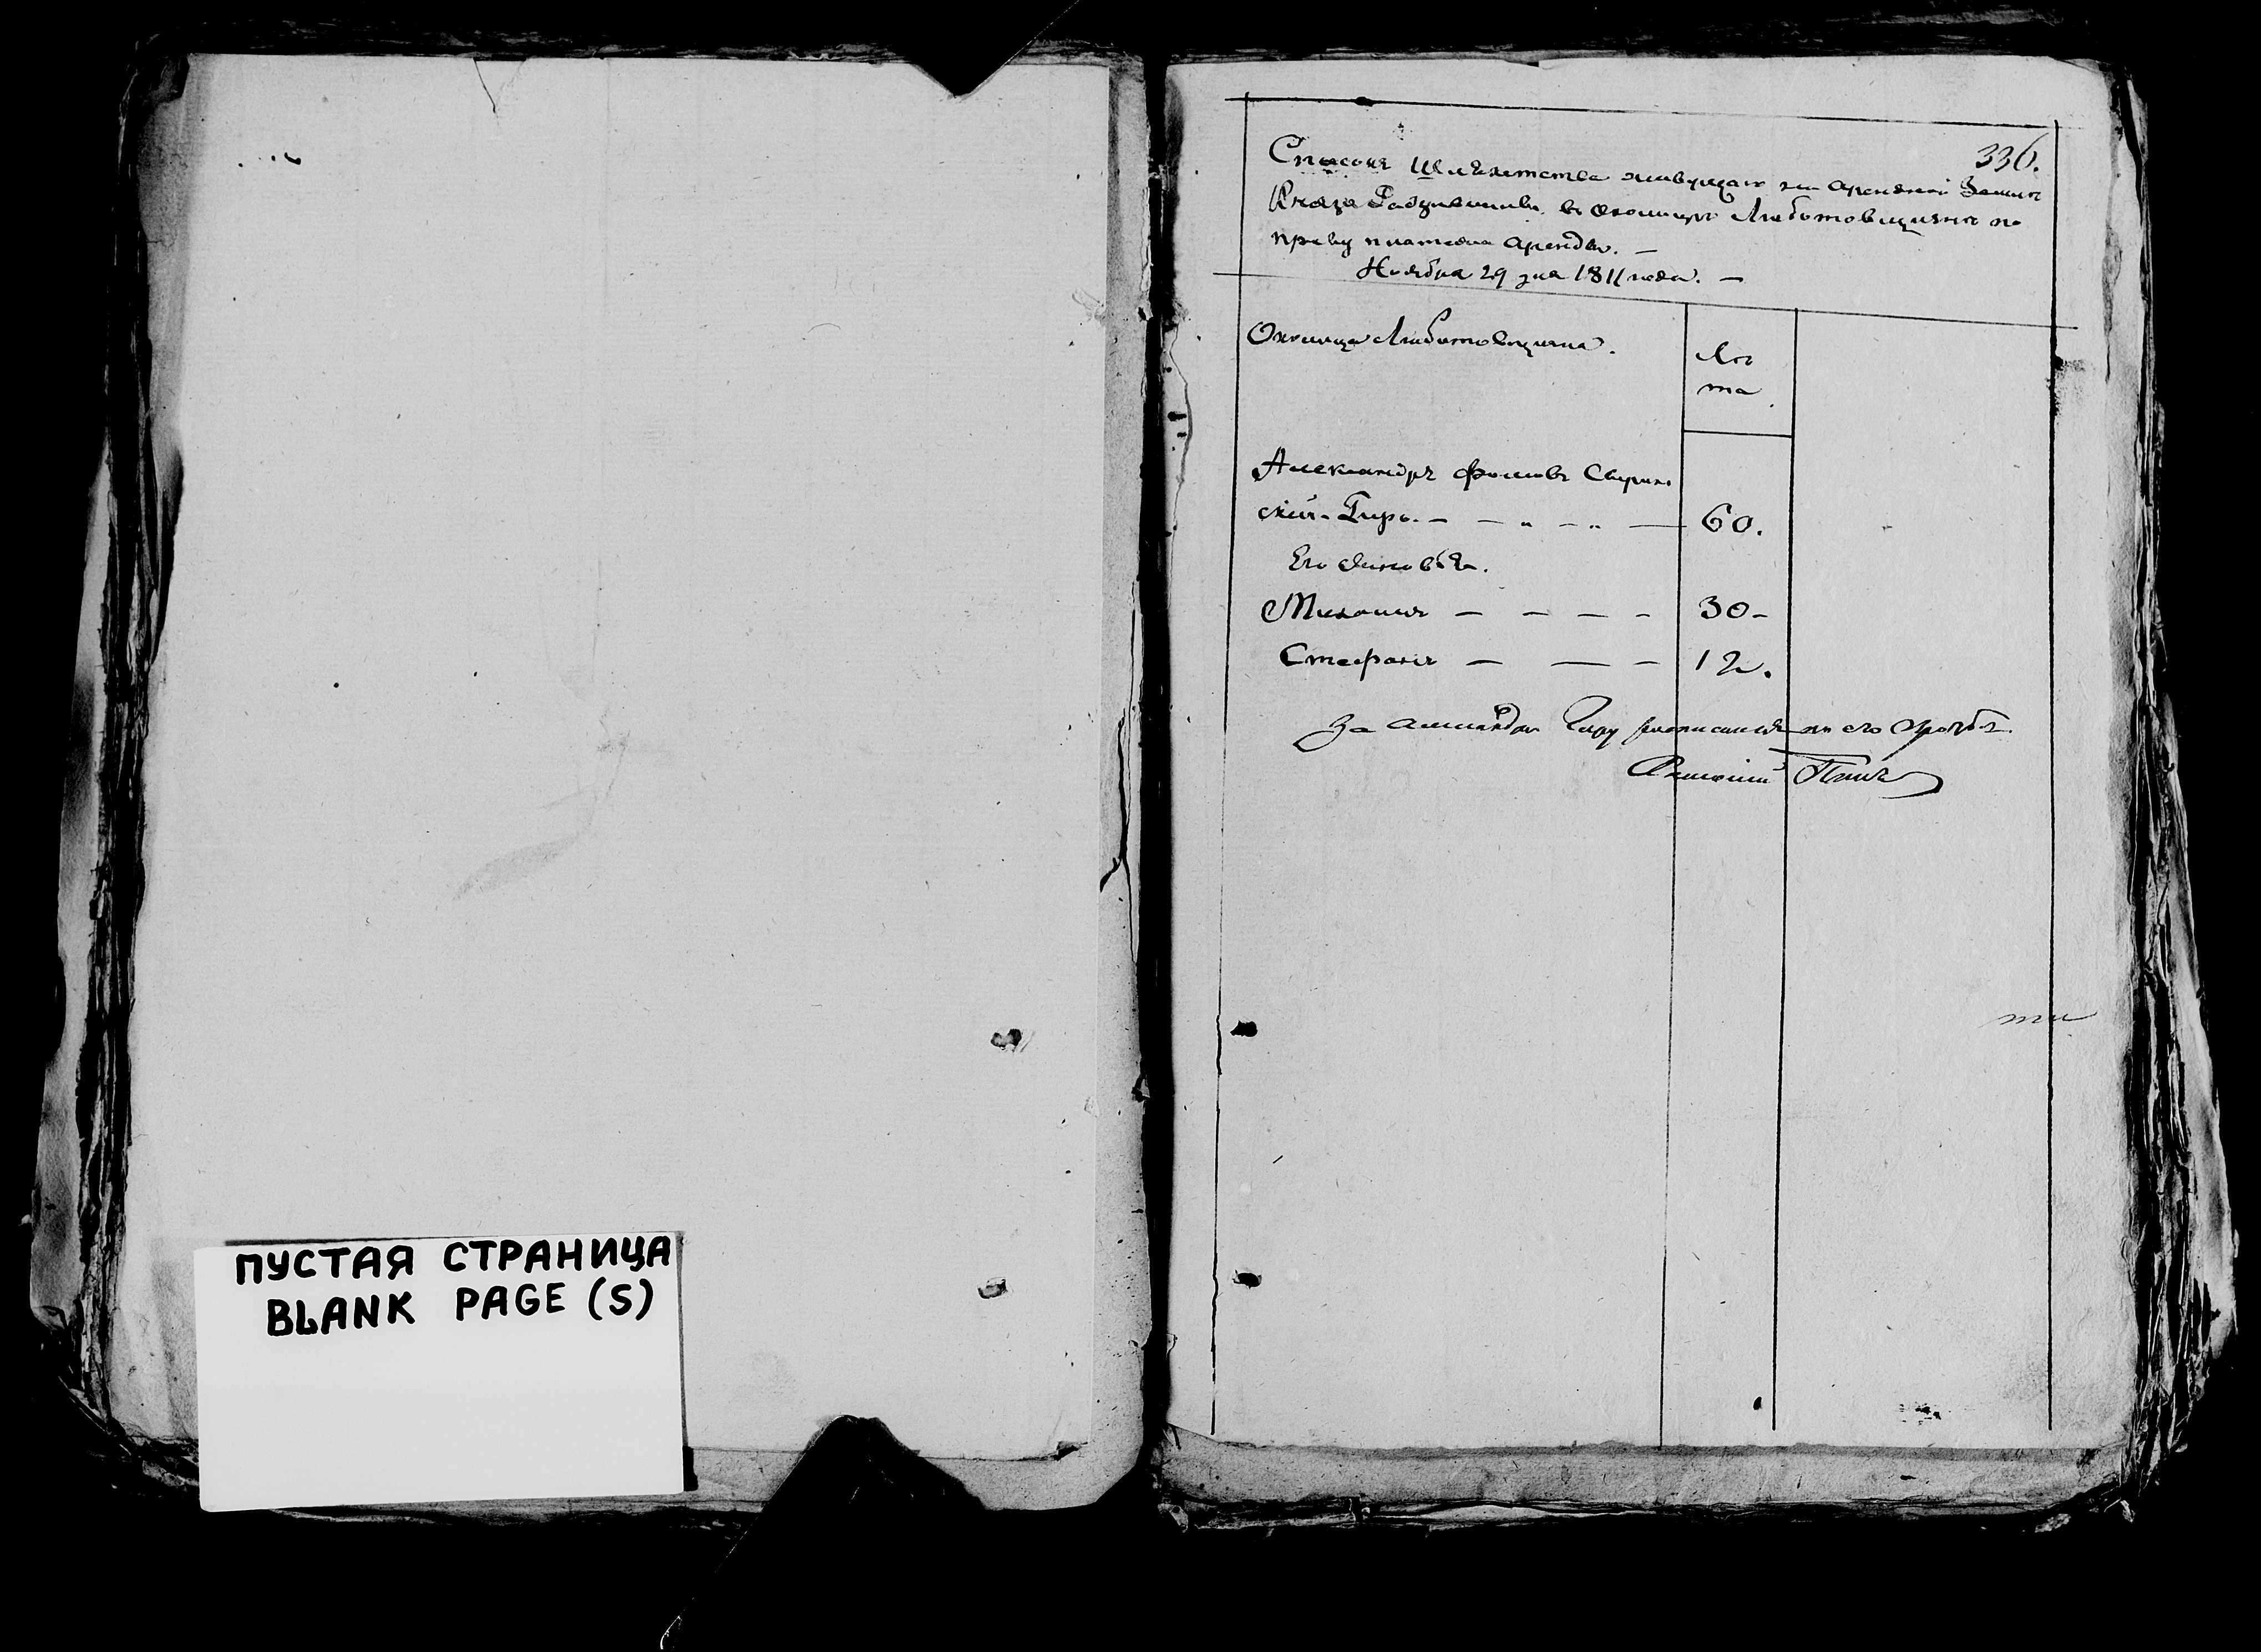 ПУСТАЯ СТРАНИЦА
BLANK PAGE (S)
336.
Списокъ Шляхетства живущаго на арендной Земли
Князя Радзивилла въ околицы Любатовщизнѣ по
праву платежа аренды. —
Ноября 29 дня 1811 года. —
Околица Любатовщизна.
Лѣ
та.
Александръ Фомовъ
скій Гиръ. — 60.
Его Сыновья.
Михаилъ — — — — 30 -
Стефанъ — — — 12.
За Гиру росписался по его прозбѣ